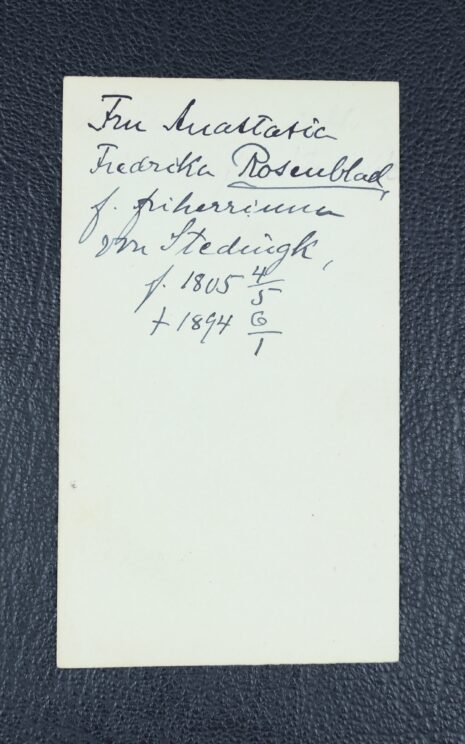 Fru Anastasia
Fredrika Rosenblad,
f. friherrinna
von Stedingk,
f. 1805 4/5
† 1894 6/1